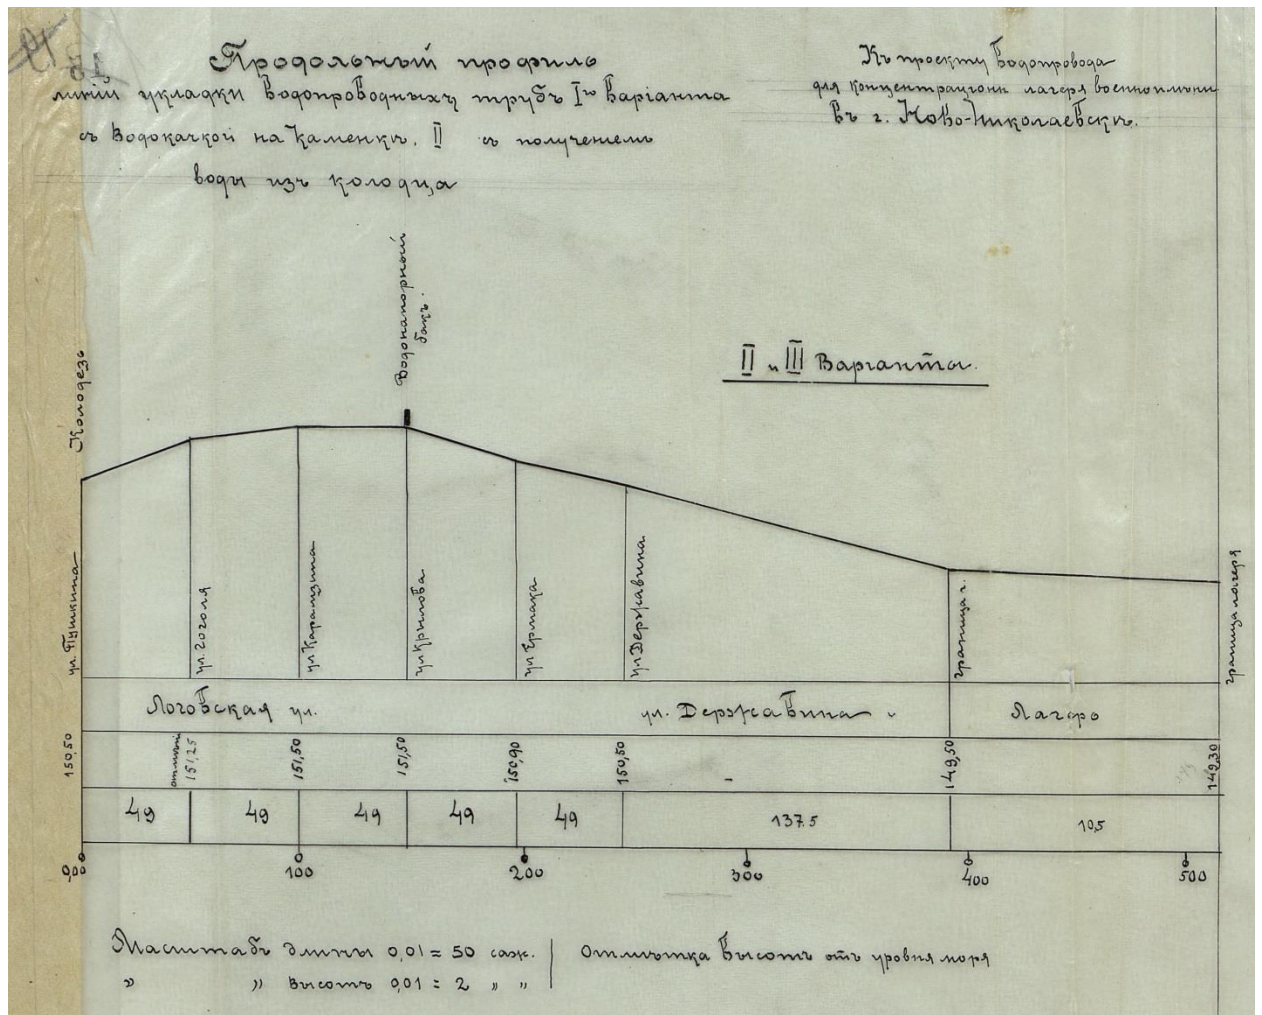 15
Продольный профиль
линій укладки водопроводныхъ трубъ Iго Варіанта
съ водокачкой на Каменкѣ. II съ полученіемъ
воды изъ колодца
Къ проекту водопровода
для концентраціон лагеря военноплѣнн
въ г. Ново-Николаевскѣ.
Водонапорный
бакъ.
Колодезь
II и III Варианты.
ул. Пушкина
ул. Гоголя
ул Карамзина
ул Крылова
ул Ермака
ул Державина
граница г.
граница лагеря
Логовская ул.
ул. Державина
Лагерь
150,50
отмѣтки
151,25
151,50
151,50
150,90
150,50
149,50
149,30
49 49 49 49 49 137.5 105
000 100 200 300 400 500
Масштабъ длины 0,01 = 50 саж.
" " высотъ 0,01 = 2 " "
Отмѣтка высотъ отъ уровня моря